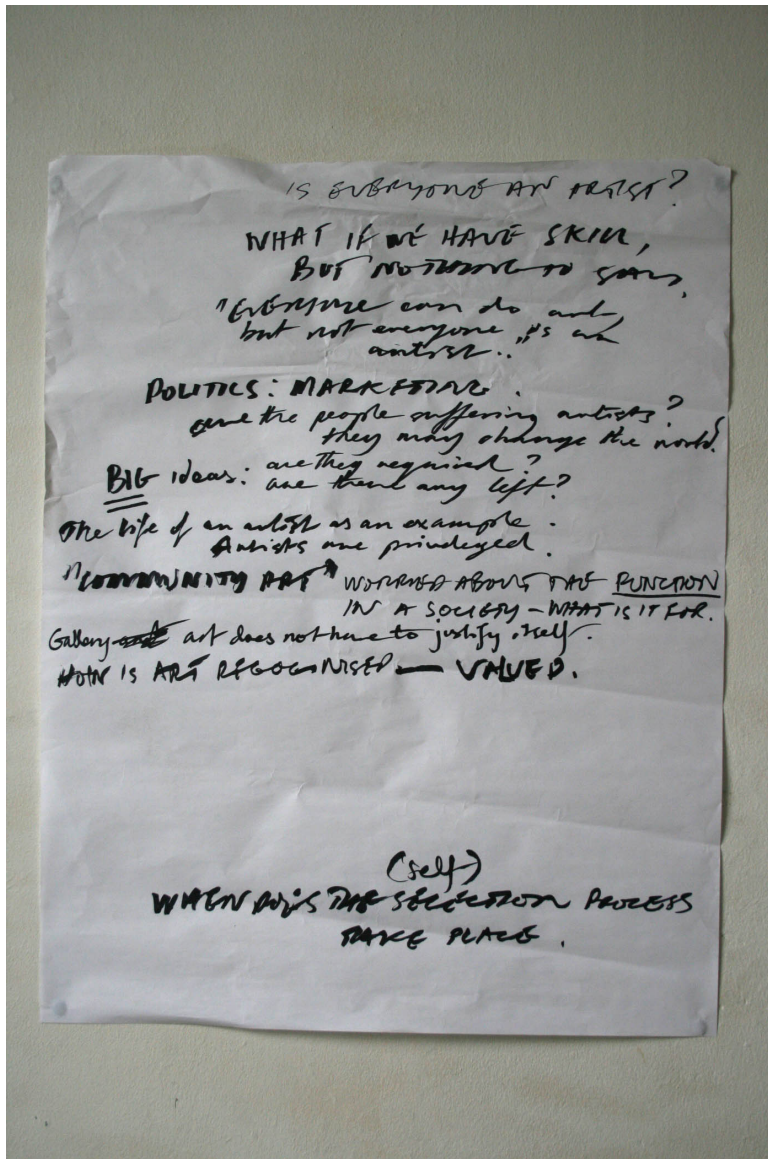 IS EVERYONE AN ARTIST?
WHAT IF WE HAVE SKILL,
BUT NOTHING TO SAY.
"EVERYONE can do art,
but not everyone is an
artist.."
POLITICS: MARKETING.
are the people suffering artists?
they may change the world.
BIG ideas: are they required?
are there any left?
The life of an artist as an example.
Artists are privileged.
"COMMUNITY ART" WORRIED ABOUT THE FUNCTION
IN A SOCIETY - WHAT IS IT FOR.
Gallery art does not have to justify itself.
HOW IS ART RECOGNISED — VALUED.
(self)
WHEN DOES THE SELECTION PROCESS
TAKE PLACE.